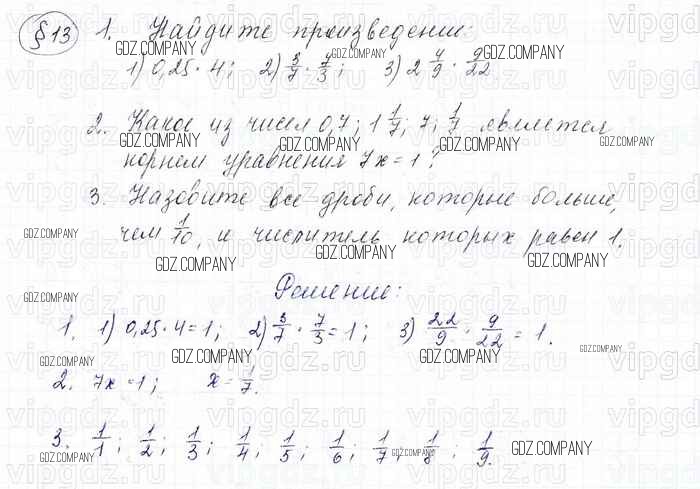 § 13 1. Найдите произведение:
1) 0,25 · 4; 2) 3/7 · 7/3; 3) 2 4/9 · 9/22.
2. Какое из чисел 0,7; 1 1/7; 7; 1/7 является
корнем уравнения 7x = 1?
3. Назовите все дроби, которые больше,
чем 1/10, и числитель которых равен 1.
Решение:
1. 1) 0,25 · 4 = 1; 2) 3/7 · 7/3 = 1; 3) 22/9 · 9/22 = 1.
2. 7x = 1; x = 1/7.
3. 1/1; 1/2; 1/3; 1/4; 1/5; 1/6; 1/7; 1/8; 1/9.
GDZ.COMPANY
vipgdz.ru